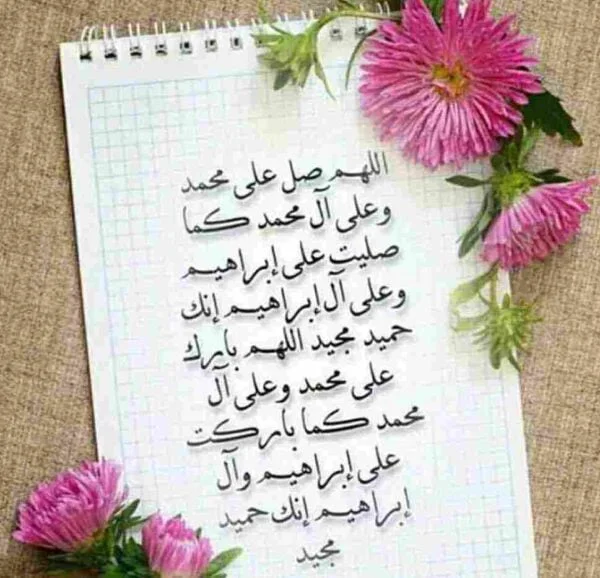 اللهم صل على محمد
وعلى آل محمد كما
صليت على إبراهيم
وعلى آل إبراهيم إنك
حميد مجيد اللهم بارك
على محمد وعلى آل
محمد كما باركت
على إبراهيم وآل
إبراهيم إنك حميد
مجيد